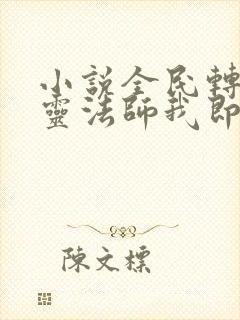 小説全民轉
靈法師我即
陳文標